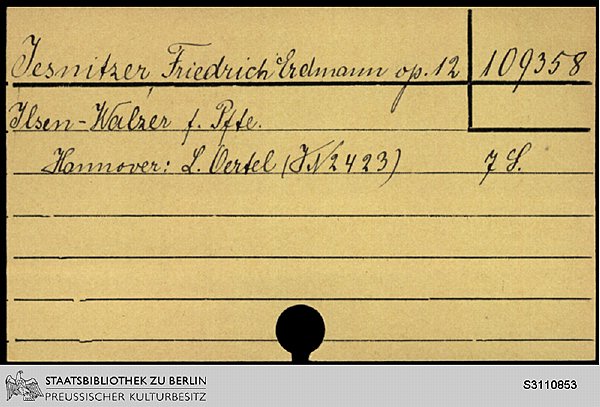 Jesnitzer, Friedrich Erdmann op. 12 109358
Ilsen-Walzer f. Pfte.
Hannover: L. Oertel (VN 2423) 7 S.
STAATSBIBLIOTHEK ZU BERLIN
PREUSSISCHER KULTURBESITZ
S3110853